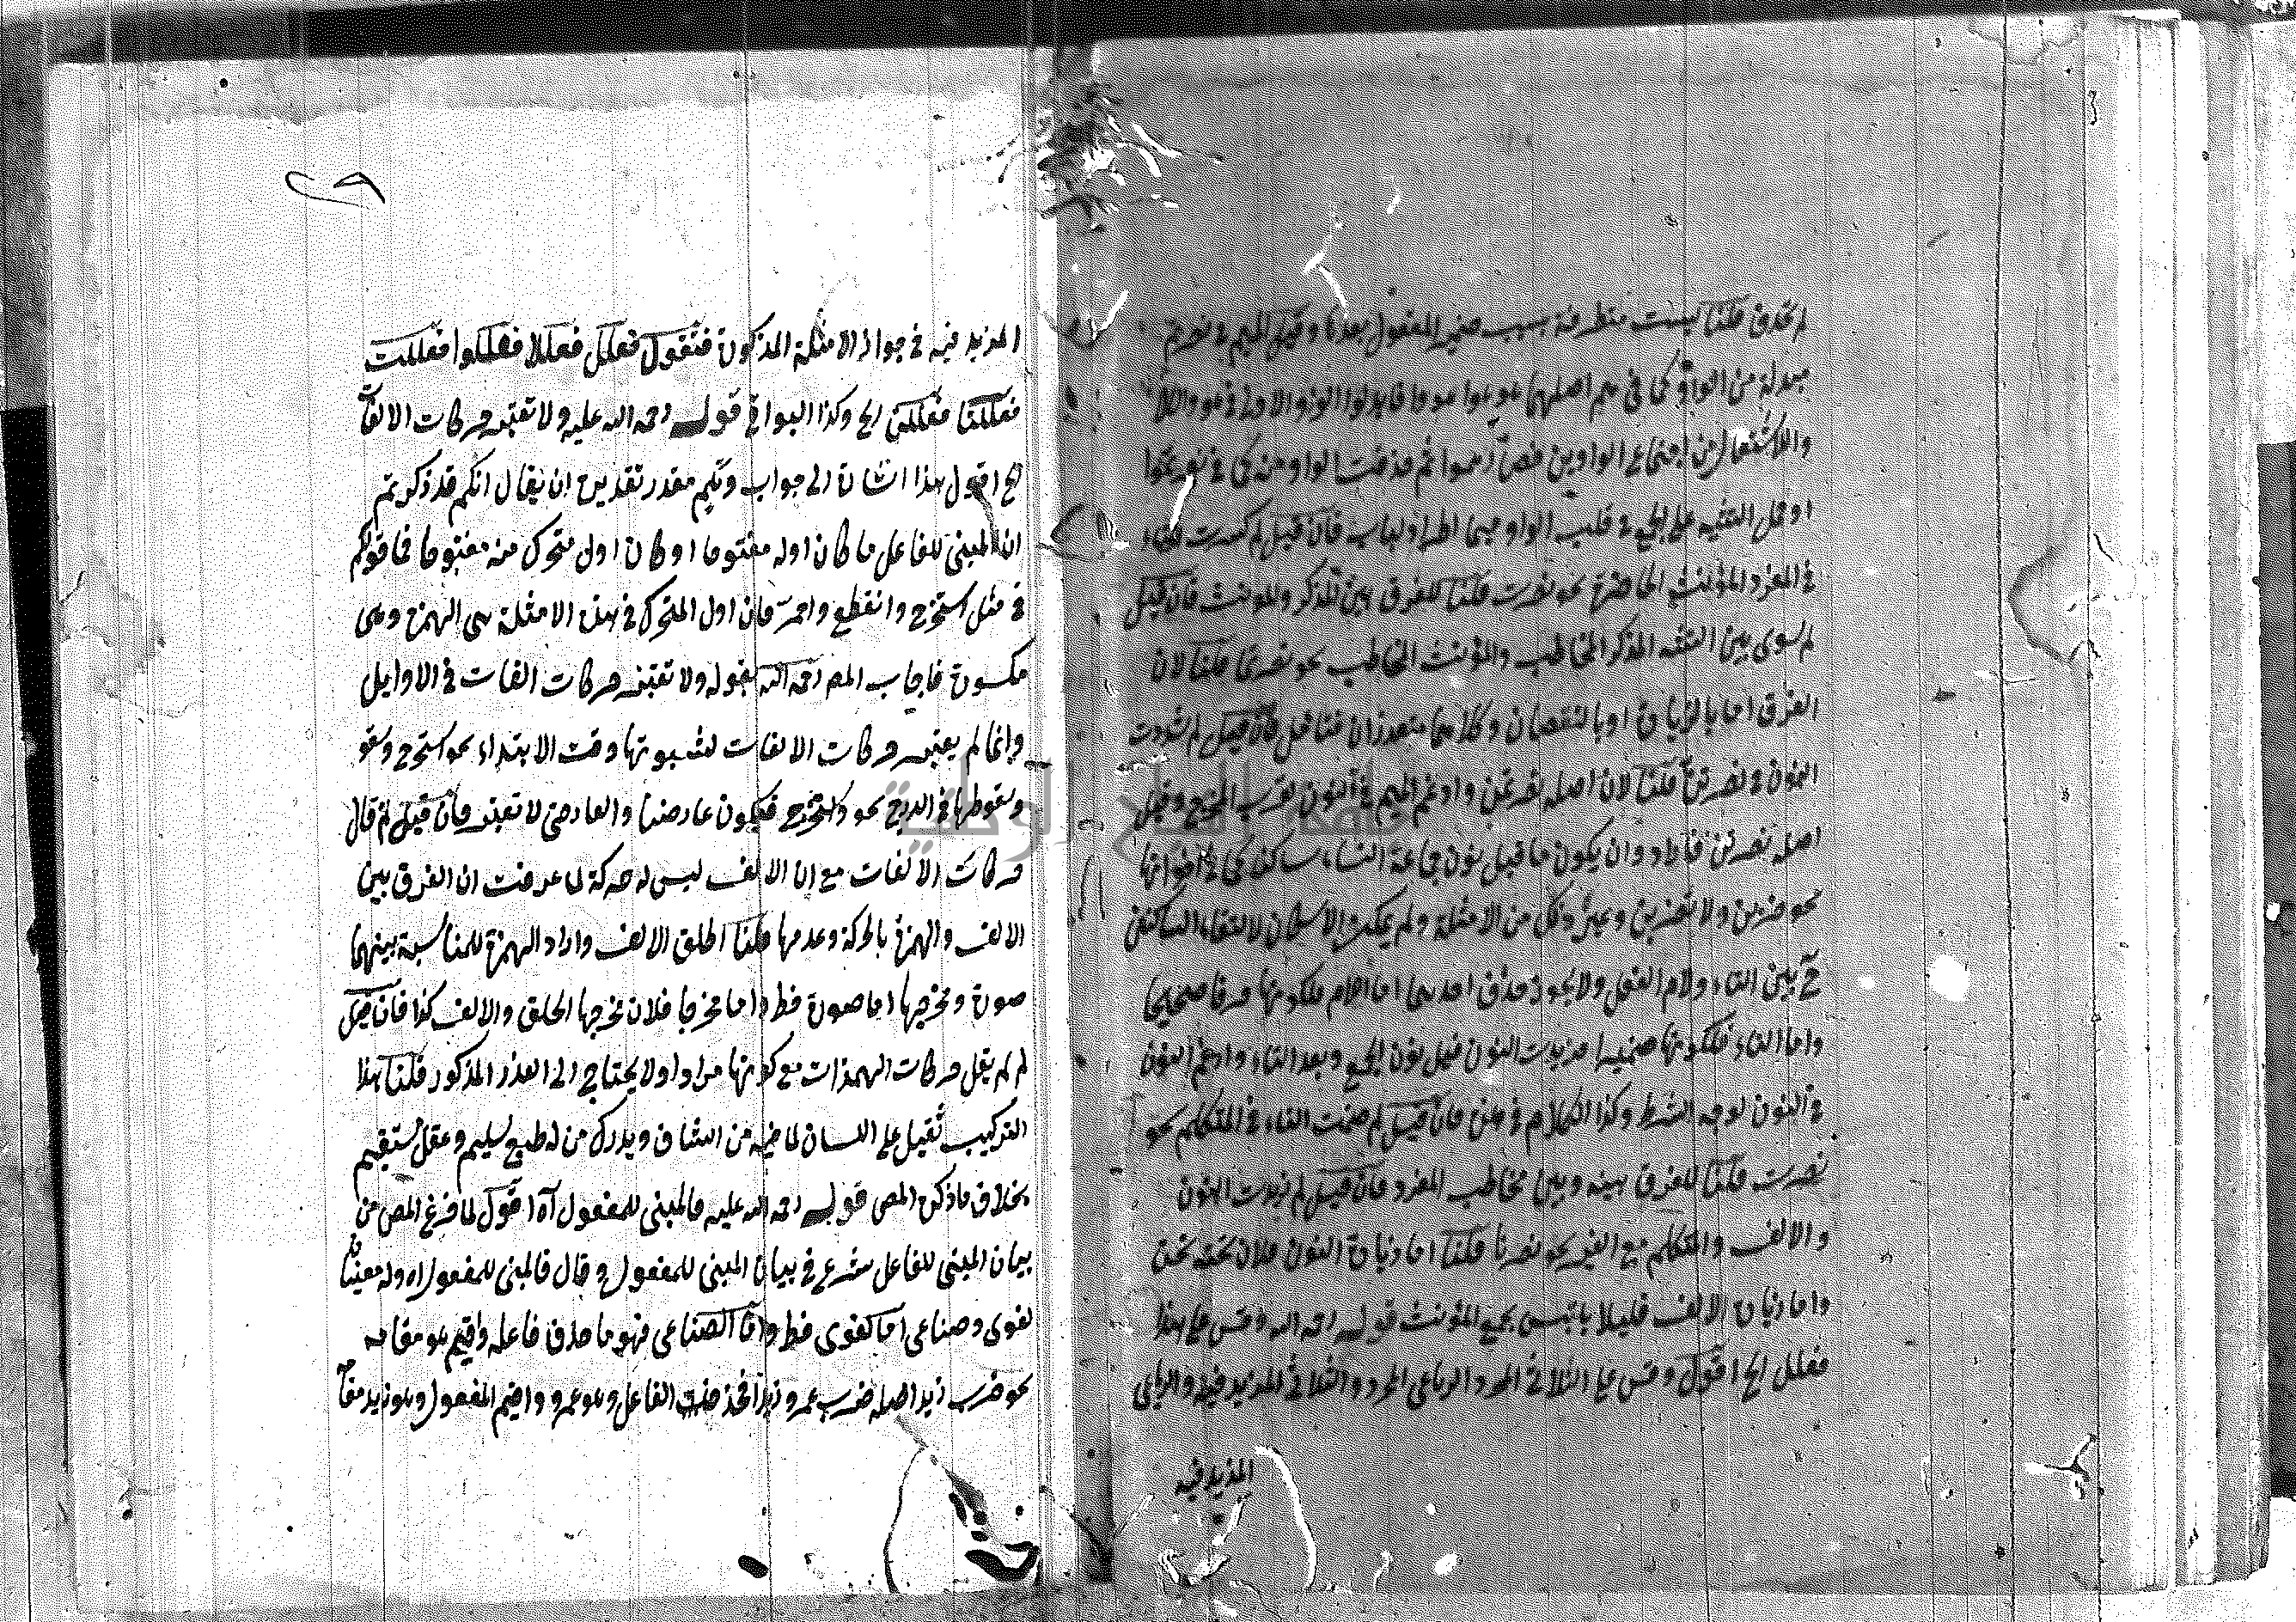 لم تحذف قلنا ليست متطرفة بسبب ضمير المفعول بعدها وقيل الميم في ضربتم
مبدلة من الواو كما في هم اصلها هو
والاشتغال من اجتماع الواوين فصار هموا ثم حذفت الواو منه كما في ضربتموا
او حمل التثنية على الجمع في قلب الواو ميما اطرادا للباب فان قيل لم كسرت التاء
في المفرد المؤنث الحاضرة نحو نصرت قلنا للفرق بين المذكر والمؤنث فان قيل
لم سوى بين التثنيه المذكر المخاطب والمؤنث المخاطب نحو نصرتما قلنا لان
الفرق اما بالزيادة او بالنقصان وكلاهما متعذران فتأمل فان قيل لم شددت
النون في نصرتن قلنا لان اصله نصرتمن وادغم الميم في النون لقرب المخرج وقيل
اصله نصرتن فاراد وان يكون ما قبل نون جماعة النساء ساكن كما في اخواتها
نحو ضربن ولا تضربن وغير ذلك من الامثلة ولم يمكن الاسكان لالتقاء الساكنين
ح بين التاء ولام الفعل ولا يجوز حذف احدهما اما اللام فلكونها حرفا صحيحا
واما التاء فلكونها ضميرا فزيدت النون قبل نون الجمع وبعد التاء وادغم النون
في النون لوجه الشرط وكذا الكلام في فان قيل لم ضمت التاء في المتكلم نحو
نصرت قلنا للفرق بينه وبين مخاطب المفرد فان قيل لم زيدت النون
والالف والمتكلم مع الغير نحو نصرنا قلنا اما زيادة النون فلان تحته نحن
واما زيادة الالف فليلا يلتبس بجمع المؤنث قوله رحمه الله وقس على هذا
فعلل الخ اقول وقس على الثلاثي المجرد الرباعي المجرد والثلاثي المزيد فيه والرباعي
المزيد فيه
المزيد فيه في جواز الامثلة المذكورة فتقول فعلل فعللا فعللوا فعللت
فعللتا فعللن الخ وكذا البواقي قوله رحمه الله عليه ولا تعتبر حركات الالفات
الخ اقول هذا اشارة الى جواب وتكم مقدر تقديره ان يقال انكم قد ذكرتم
ان المبني للفاعل ما كان اوله مفتوحا او كان اول متحرك منه مفتوحا فما قولكم
في مثل استخرج وانقطع واحمر فان اول المتحرك في هذه الامثلة هي الهمزة وهي
مكسورة فاجاب المص رحمه الله بقوله ولا تعتبر حركات الفات في الاوايل
وانما لم يعتبر حركات الالفات لثبوتها وقت الابتداء نحو استخرج وسقو
وسقوطها في الدرج نحو واستخرج فيكون عارضنا والعارضى لا تعتبر فان قيل لم قال
حركات الالفات مع ان الالف ليس له حركة لما عرفت ان الفرق بين
الالف والهمزة بالحركة وعدمها قلنا اطلق الالف واراد الهمزة للمناسبة بينهما
صورة ومخرجها اما صورة فظ واما مخرجا فلان مخرجها الحلق والالف كذا فان قيل
لم لم يقل حركات الهمذات مع كونها مرادا ولا يحتاج الى العذر المذكور قلنا هذا
التركيب ثقيل على اللسان لما فيه من المشاق ويدرك من له طبع سليم وعقل مستقيم
بخلاف ما ذكره المص قوله رحمه الله عليه فالمبنى للمفعول آه اقول لما فرغ المص من
بيان المبنى للفاعل شرع في بيان المبنى للمفعول وقال فالمبنى للمفعول اه وله معنيان
لغوى وصناعى اما لغوى فظ واما الصناعى فهو ما حذف فاعله واقيم هو مقامه
نحو ضرب زيد اصله ضرب عمرو زيدا فحذفت الفاعل وهو عمرو واقيم المفعول وهو زيد مقا